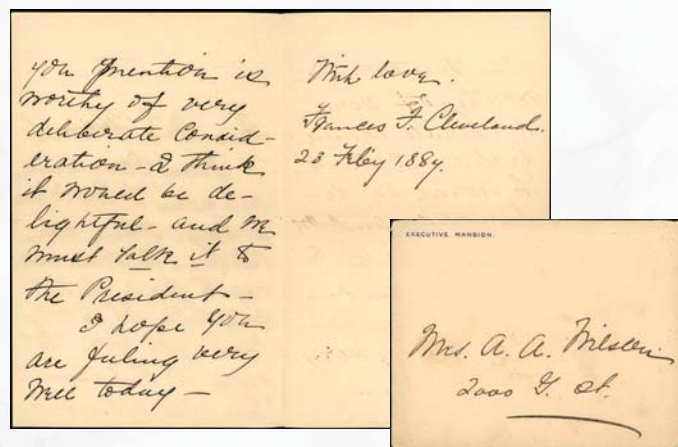 you mention is
worthy of very
deliberate consid-
eration - I think
it would be de-
lightful - and we
must talk it to
the President -
I hope you
are feeling very
well today -
With love.
Frances F. Cleveland.
23 Feby 1887.
EXECUTIVE MANSION.
Mrs. A. A. Wilson
2000 G. St.